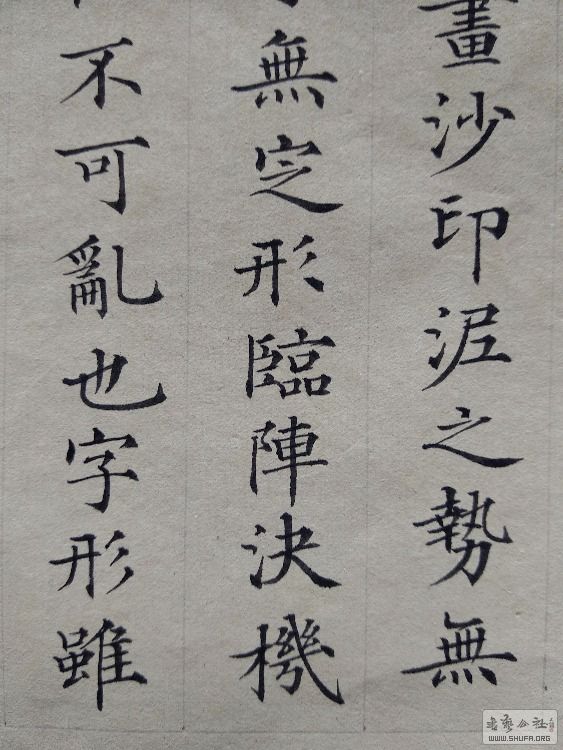 畫沙印泥之勢無
無定形臨陣決機
不可亂也字形雖
書藝公社
WWW.SHUFA.ORG